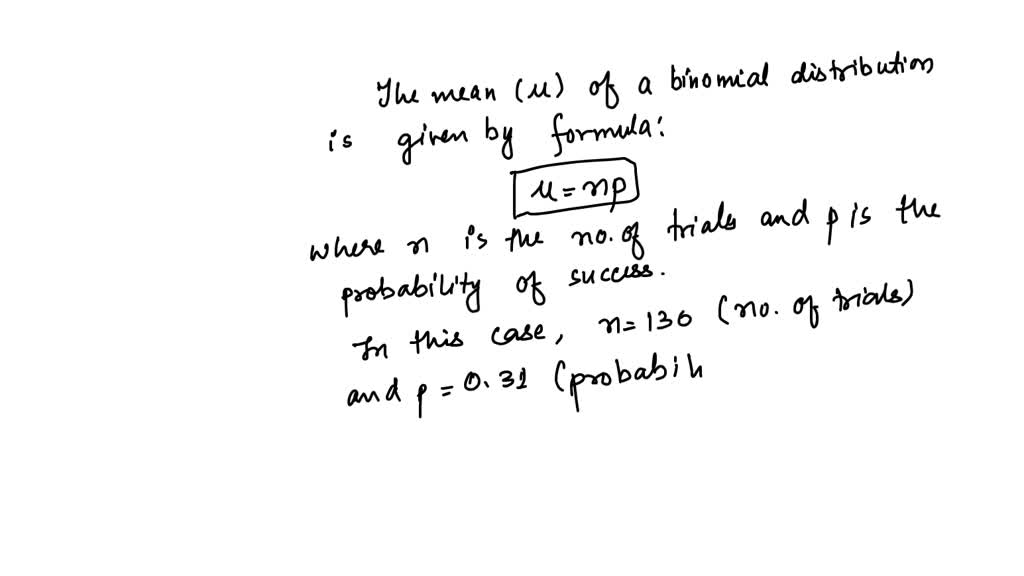 The mean (μ) of a binomial distribution
is given by formula:
μ = np
where n is the no. of trials and p is the
probability of success.
In this case, n = 130 (no. of trials)
and p = 0.31 (probabili